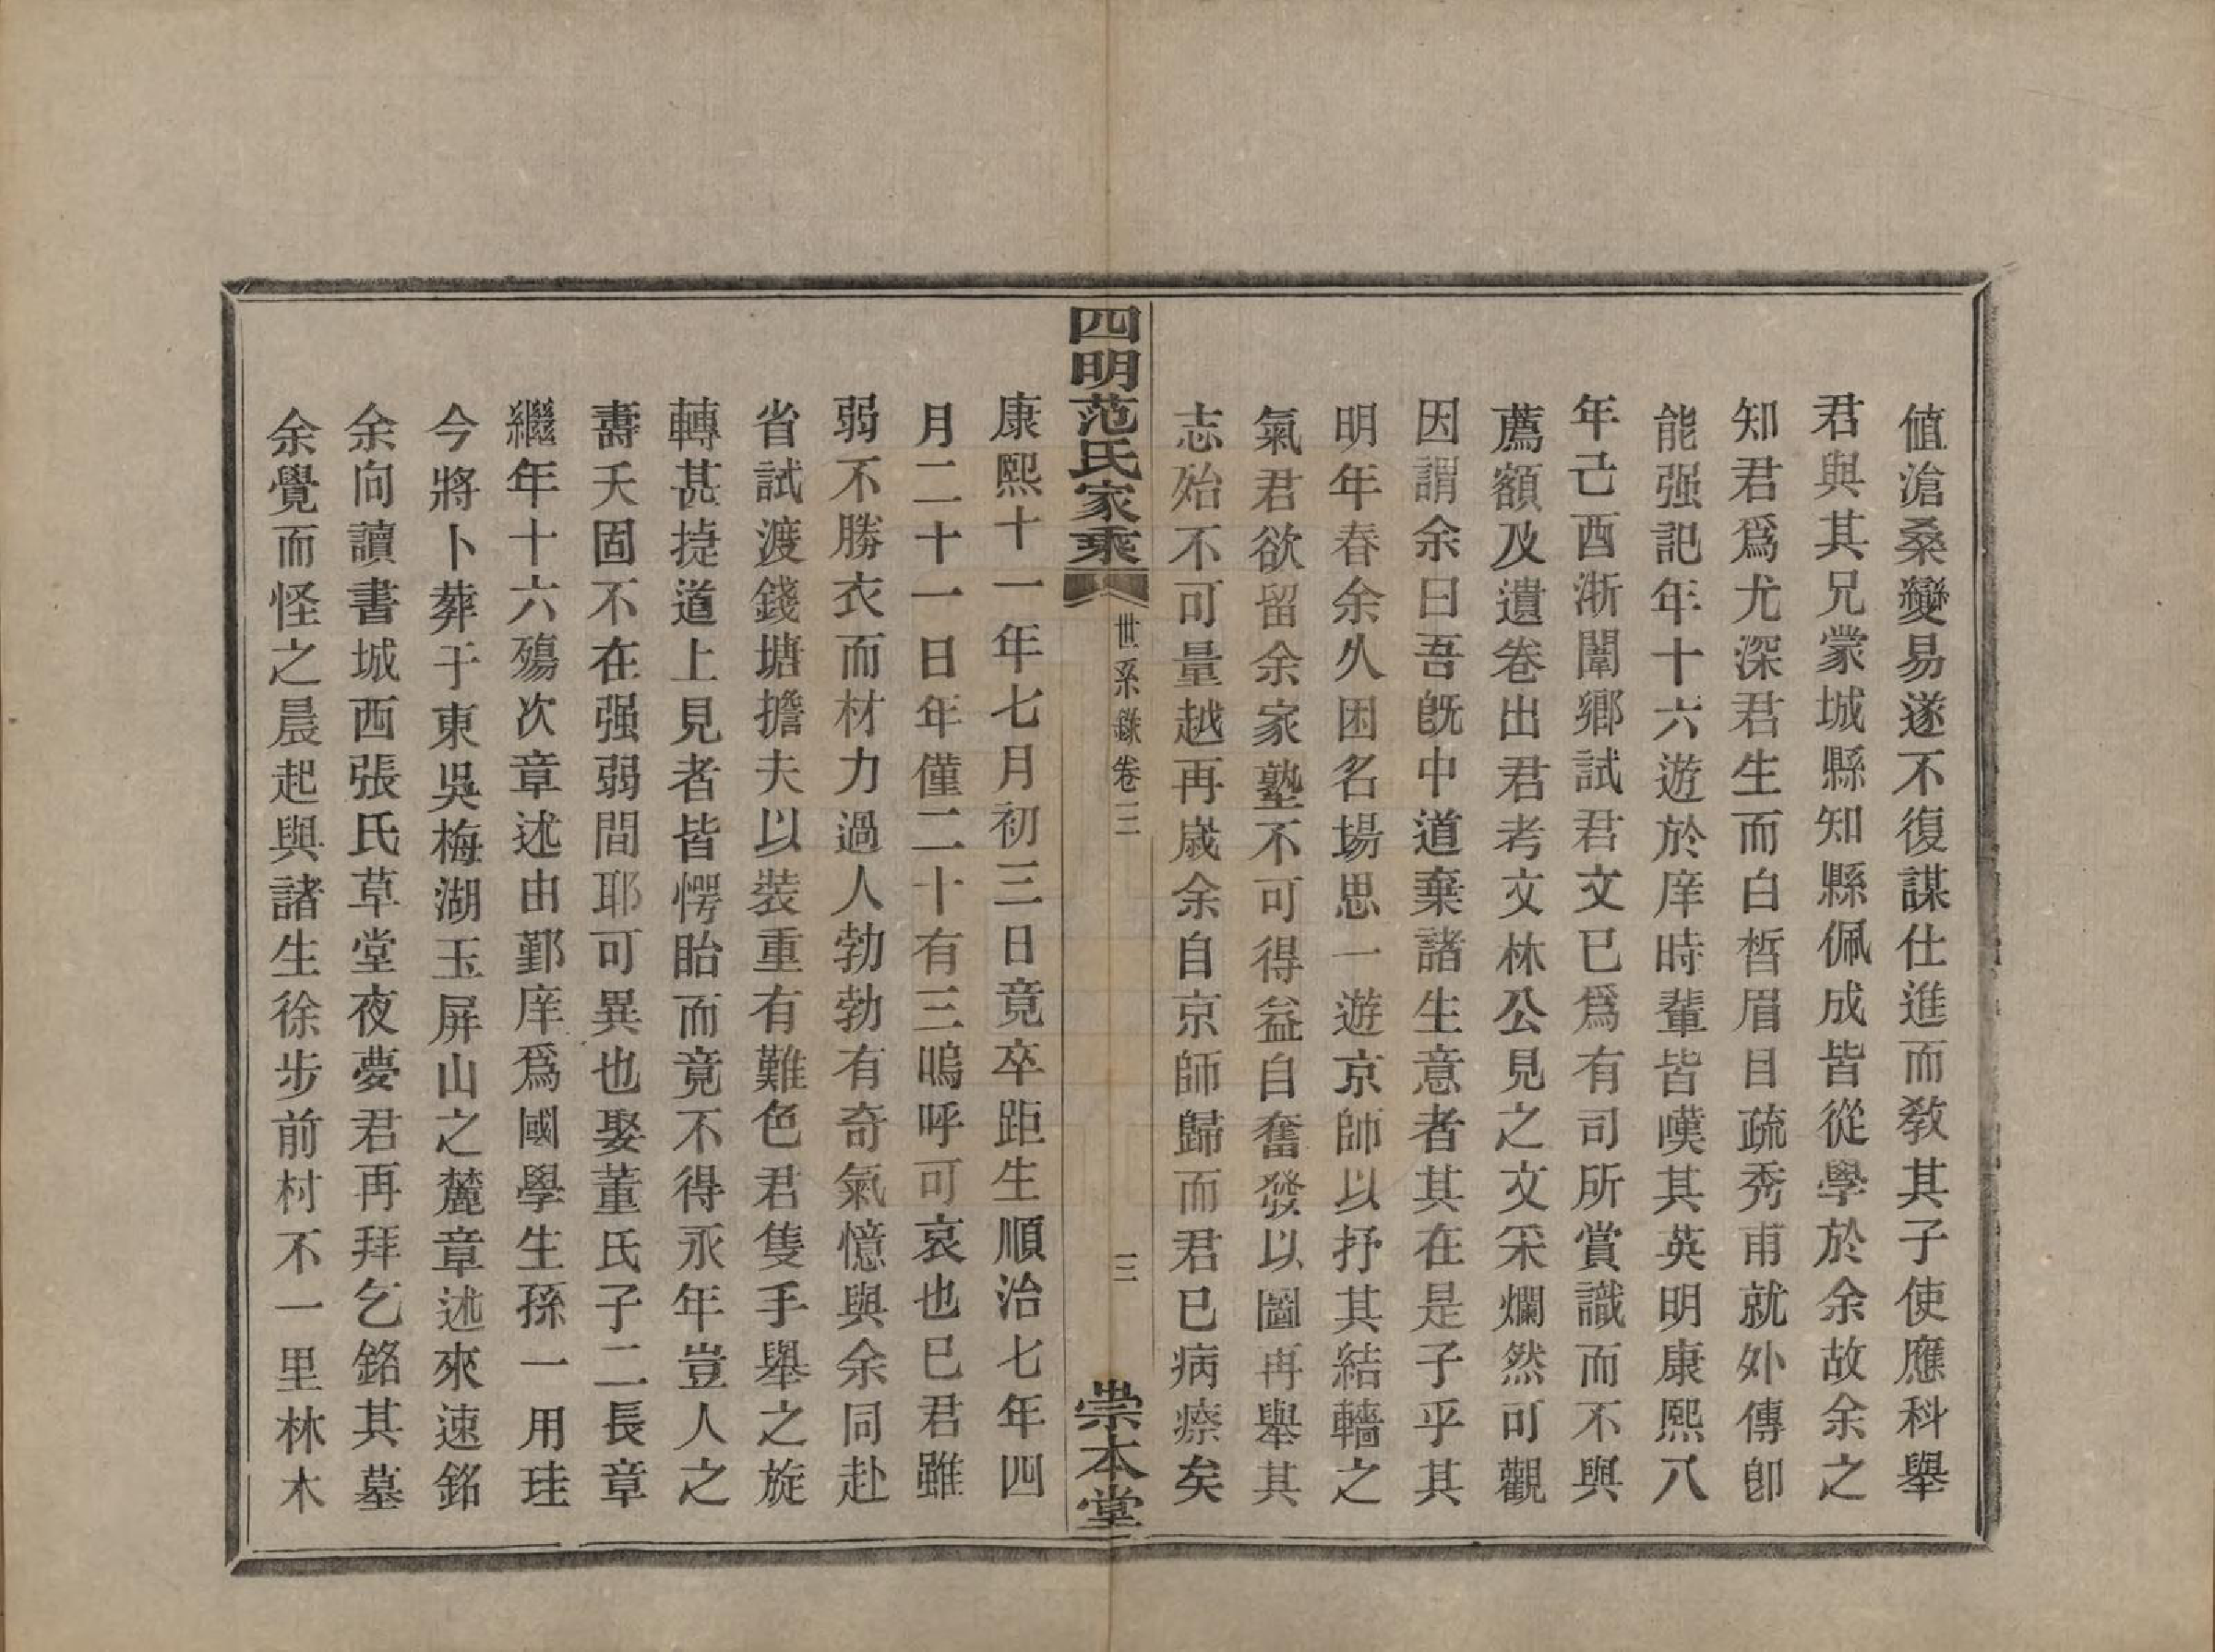 値滄桑變易遂不復謀仕進而敎其子使應科舉
君與其兄蒙城縣知縣佩成皆從學於余故余之
知君爲尤深君生而白晳眉目疏秀甫就外傳卽
能强記年十六遊於庠時輩皆嘆其英明康熙八
年己酉浙闈鄉試君文已爲有司所賞識而不與
薦額及遺卷出君考文林公見之文采爛然可觀
因謂余曰吾旣中道棄諸生意者其在是子乎其
明年春余久困名場思一遊京師以抒其結轖之
氣君欲留余家塾不可得益自奮發以圖再舉其
志殆不可量越再歲余自京師歸而君已病瘵矣
四明范氏家乘
世系錄卷三
三
崇本堂
康熙十一年七月初三日竟卒距生順治七年四
月二十一日年僅二十有三嗚呼可哀也已君雖
弱不勝衣而材力過人勃勃有奇氣憶與余同赴
省試渡錢塘擔夫以裝重有難色君隻手舉之旋
轉甚捷道上見者皆愕眙而竟不得永年豈人之
壽夭固不在强弱間耶可異也娶董氏子二長章
繼年十六殤次章述由鄞庠爲國學生孫一用珪
今將卜葬于東吳梅湖玉屏山之麓章述來速銘
余向讀書城西張氏草堂夜夢君再拜乞銘其墓
余覺而怪之晨起與諸生徐步前村不一里林木